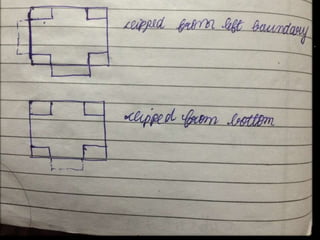 clipped from left boundary
clipped from bottom